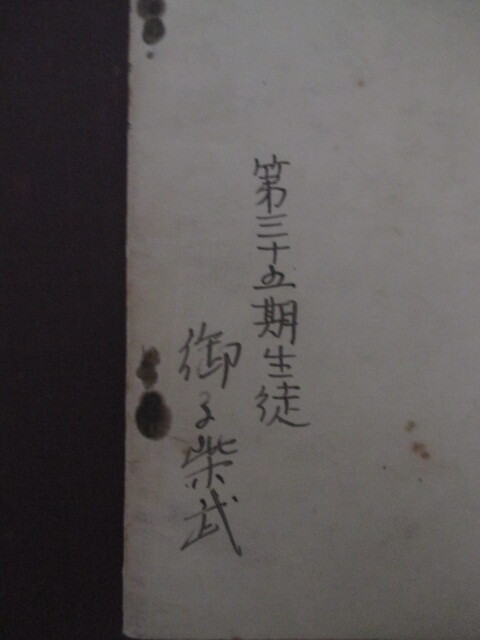 第三十五期生徒
御子柴武